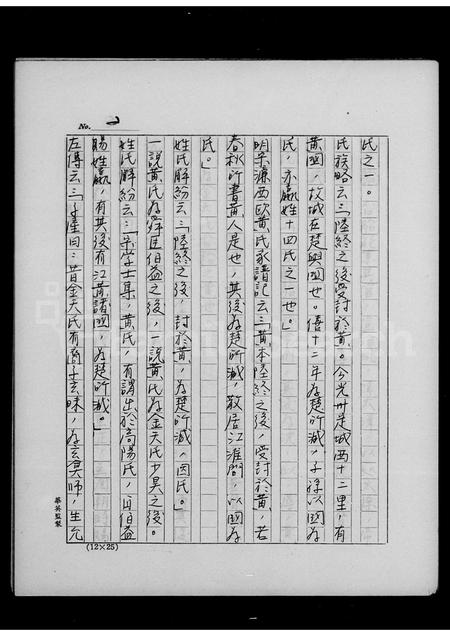 No. 2
氏之一。
氏族略云:「陸終之後受封於黃。今光州定城西十二里,有
黃國,故城在楚與國也。僖十二年為楚所滅,子孫以國為
氏,亦嬴姓十四氏之一也。」
明宋濂西歐黃氏家譜記云:「黃本陸終之後,受封於黃,若
春秋所書黃人是也,其後為楚所滅,散居江淮間,以國為
氏。」
姓氏解紛云:「陸終之後,封於黃,為楚所滅,因氏。」
一說黃氏為舜臣伯益之後,一說黃氏為金天氏少昊之後。
姓氏解紛云:「宋學士集,黃氏,有謂出於高陽氏,自伯益
賜姓嬴,有其後有江黃諸國,為楚所滅。」
左傳云:「子產曰:昔金天氏有裔子玄昧,為玄冥師,生允
(12×25)
華英監製